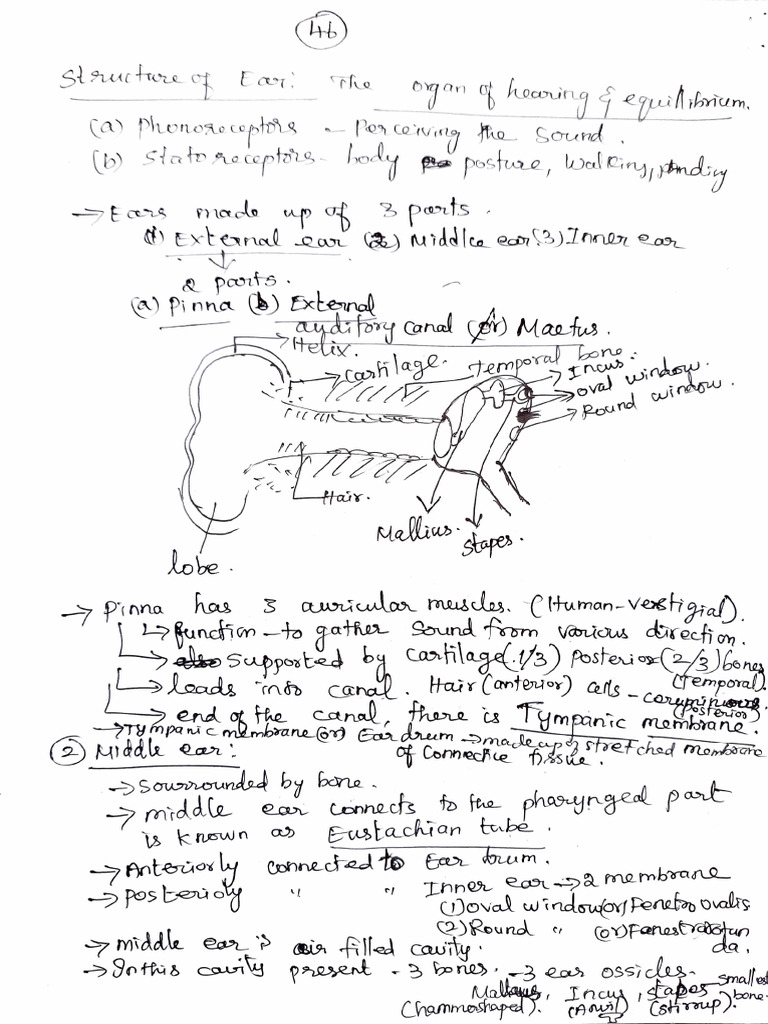 46
Structure of Ear: The organ of hearing & equillibrium.
(a) Phonoreceptors - Perceiving the Sound.
(b) Statoreceptors - body posture, walking, standing
→ Ears made up of 3 parts.
(1) External ear (2) Middle ear (3) Inner ear
2 parts.
(a) Pinna (b) External
auditory canal (or) Maetus.
Helix.
Cartilage.
Temporal bone
Incus.
oval window.
Round window.
Hair.
Mallius.
Stapes.
lobe.
→ Pinna has 3 auricular muscles. (Human-Verstigial).
↳ function - to gather Sound from various direction.
↳ supported by cartilage (1/3) posterior (2/3) bones
(Temporal).
↳ leads into canal. Hair (anterior) cells - ceruminous.
(posterior)
↳ end of the canal, there is Tympanic membrane.
→ Tympanic membrane (or) Ear drum → made up of stretched membrane
of connective tissue.
(2) Middle ear:
→ Sourrounded by bone.
→ middle ear connects to the pharyngeal part
is known as Eustachian tube.
→ Anteriorly connected to Ear drum.
→ Posterioly " " Inner ear → 2 membrane
(1) oval window (or) Fenetro ovalis
(2) Round " (or) Fanestra rotun
da.
→ middle ear is air filled cavity.
→ In this cavity present - 3 bones. - 3 ear ossicles.
Incus, stapes smallest
bone.
(hammershaped). (Anvil) (stirrup).